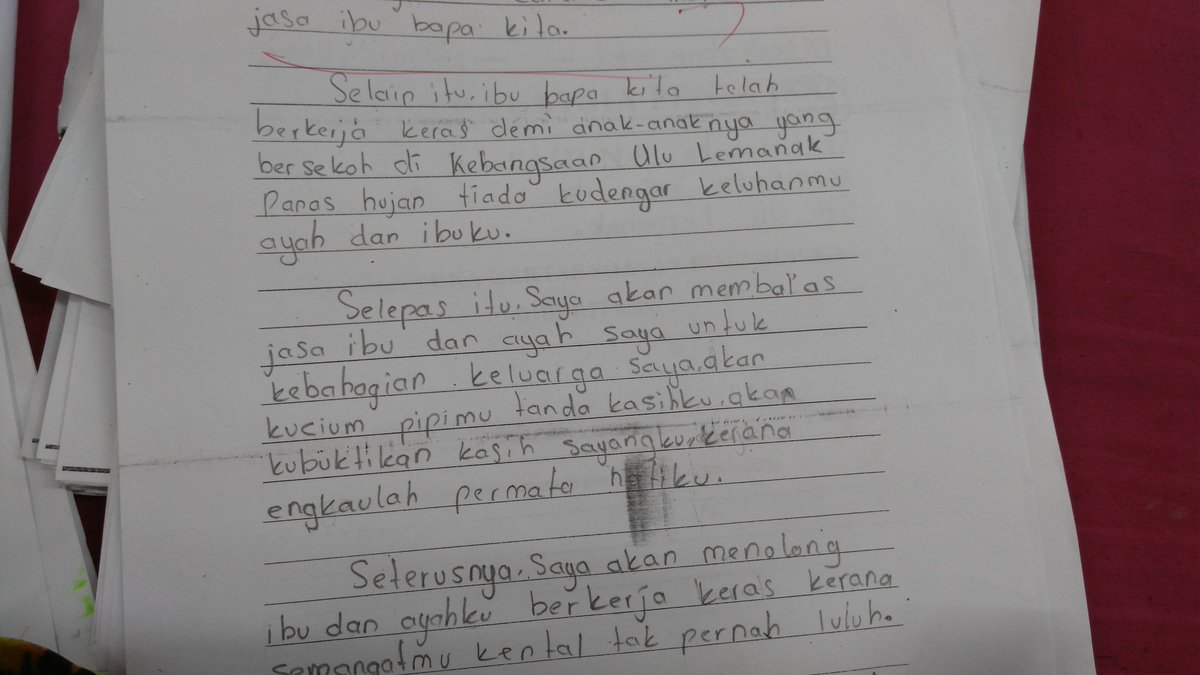 jasa ibu bapa kita.
Selain itu, ibu bapa kita telah
berkerja keras demi anak-anaknya yang
bersekoh di Kebangsaan Ulu Lemanak
Panas hujan tiada kudengar keluhanmu
ayah dan ibuku.
Selepas itu, Saya akan membalas
jasa ibu dan ayah saya untuk
kebahagian keluarga saya,akan
kucium pipimu tanda kasihku,akan
kubuktikan kasih sayangku,kerana
engkaulah permata hatiku.
Seterusnya, Saya akan menolong
ibu dan ayahku berkerja keras kerana
semangatmu kental tak pernah luluh.